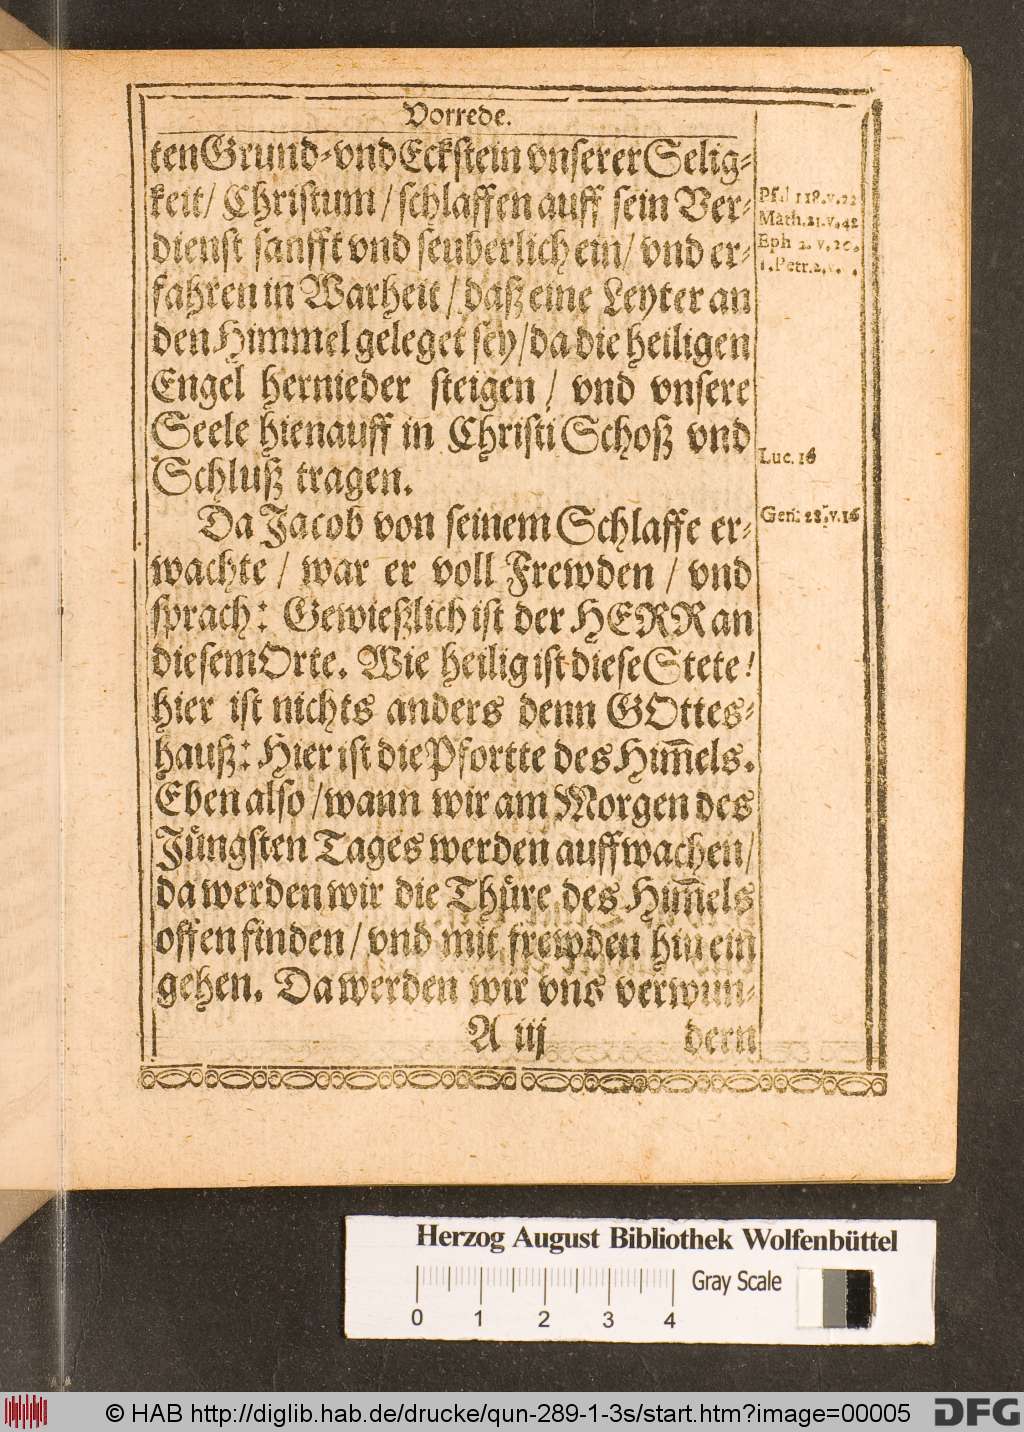 Vorrede.
ten Grund- vnd Eckstein vnserer Selig-
keit / Christum / schlaffen auff sein Ver-
dienst sanfft vnd seuberlich ein / vnd er-
fahren in Warheit / daß eine Leyter an
den Himmel geleget sey / da die heiligen
Engel hernieder steigen / vnd vnsere
Seele hienauff in Christi Schoß vnd
Schluß tragen.
Da Jacob von seinem Schlaffe er-
wachte / war er voll Frewden / vnd
sprach: Gewießlich ist der HERR an
diesem Orte. Wie heilig ist diese Stete!
hier ist nichts anders denn GOttes-
hauß: Hier ist die Pfortte des Him̅els.
Eben also / wann wir am Morgen des
Jüngsten Tages werden auffwachen /
da werden wir die Thüre des Him̅els
offen finden / vnd mit frewden hinein
gehen. Da werden wir vns verwun-
A iij dern
Psal 118.v.22
Math.21.v.42
Eph 2. v. 20.
1. Petr.2.v.
Luc. 16
Gen. 28.v.16
Herzog August Bibliothek Wolfenbüttel
0 1 2 3 4
Gray Scale
© HAB http://diglib.hab.de/drucke/qun-289-1-3s/start.htm?image=00005
DFG